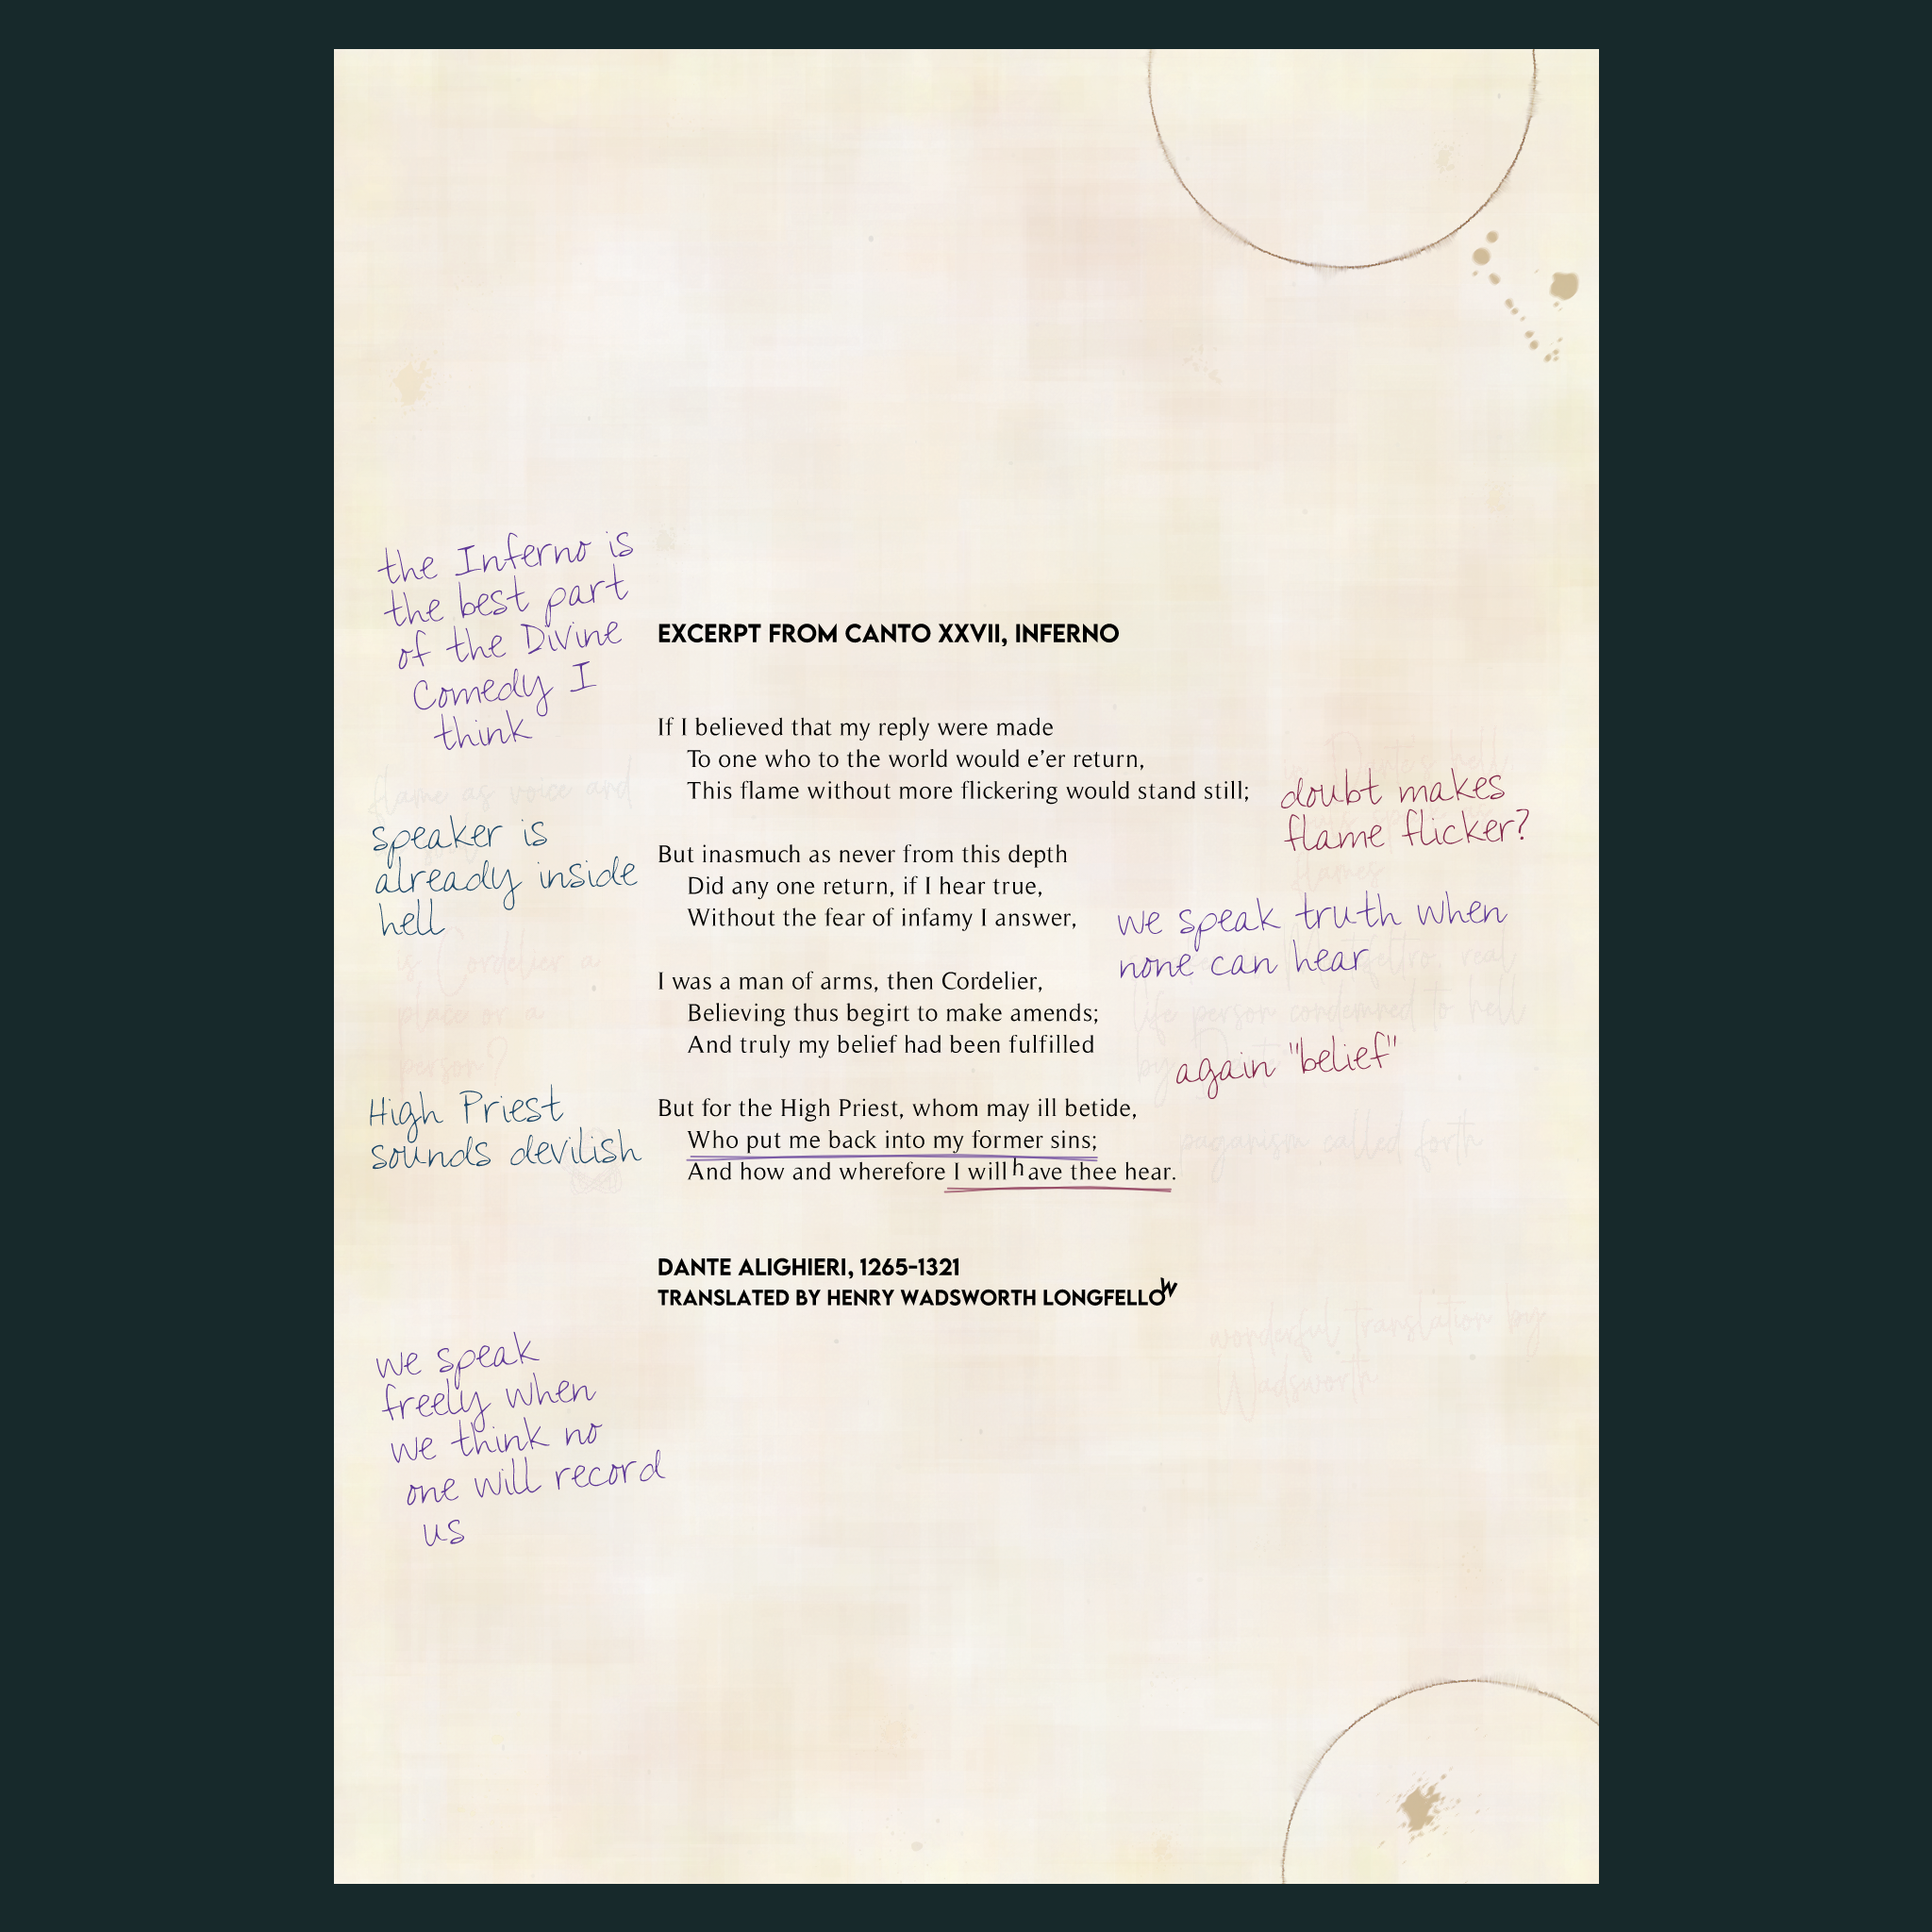 the Inferno is
the best part
of the Divine
Comedy I
think
EXCERPT FROM CANTO XXVII, INFERNO
If I believed that my reply were made
To one who to the world would e’er return,
This flame without more flickering would stand still;
doubt makes
flame flicker?
flame as voice and
speaker is
already inside
hell
But inasmuch as never from this depth
Did any one return, if I hear true,
Without the fear of infamy I answer,
we speak truth when
none can hear
flames
is Cordelier a
place or a
person?
I was a man of arms, then Cordelier,
Believing thus begirt to make amends;
And truly my belief had been fulfilled
real
life person condemned to hell
by
again "belief"
High Priest
sounds devilish
But for the High Priest, whom may ill betide,
Who put me back into my former sins;
And how and wherefore I will have thee hear.
paganism called forth
DANTE ALIGHIERI, 1265-1321
TRANSLATED BY HENRY WADSWORTH LONGFELLOW
wonderful translation by
Wadsworth
we speak
freely when
we think no
one will record
us